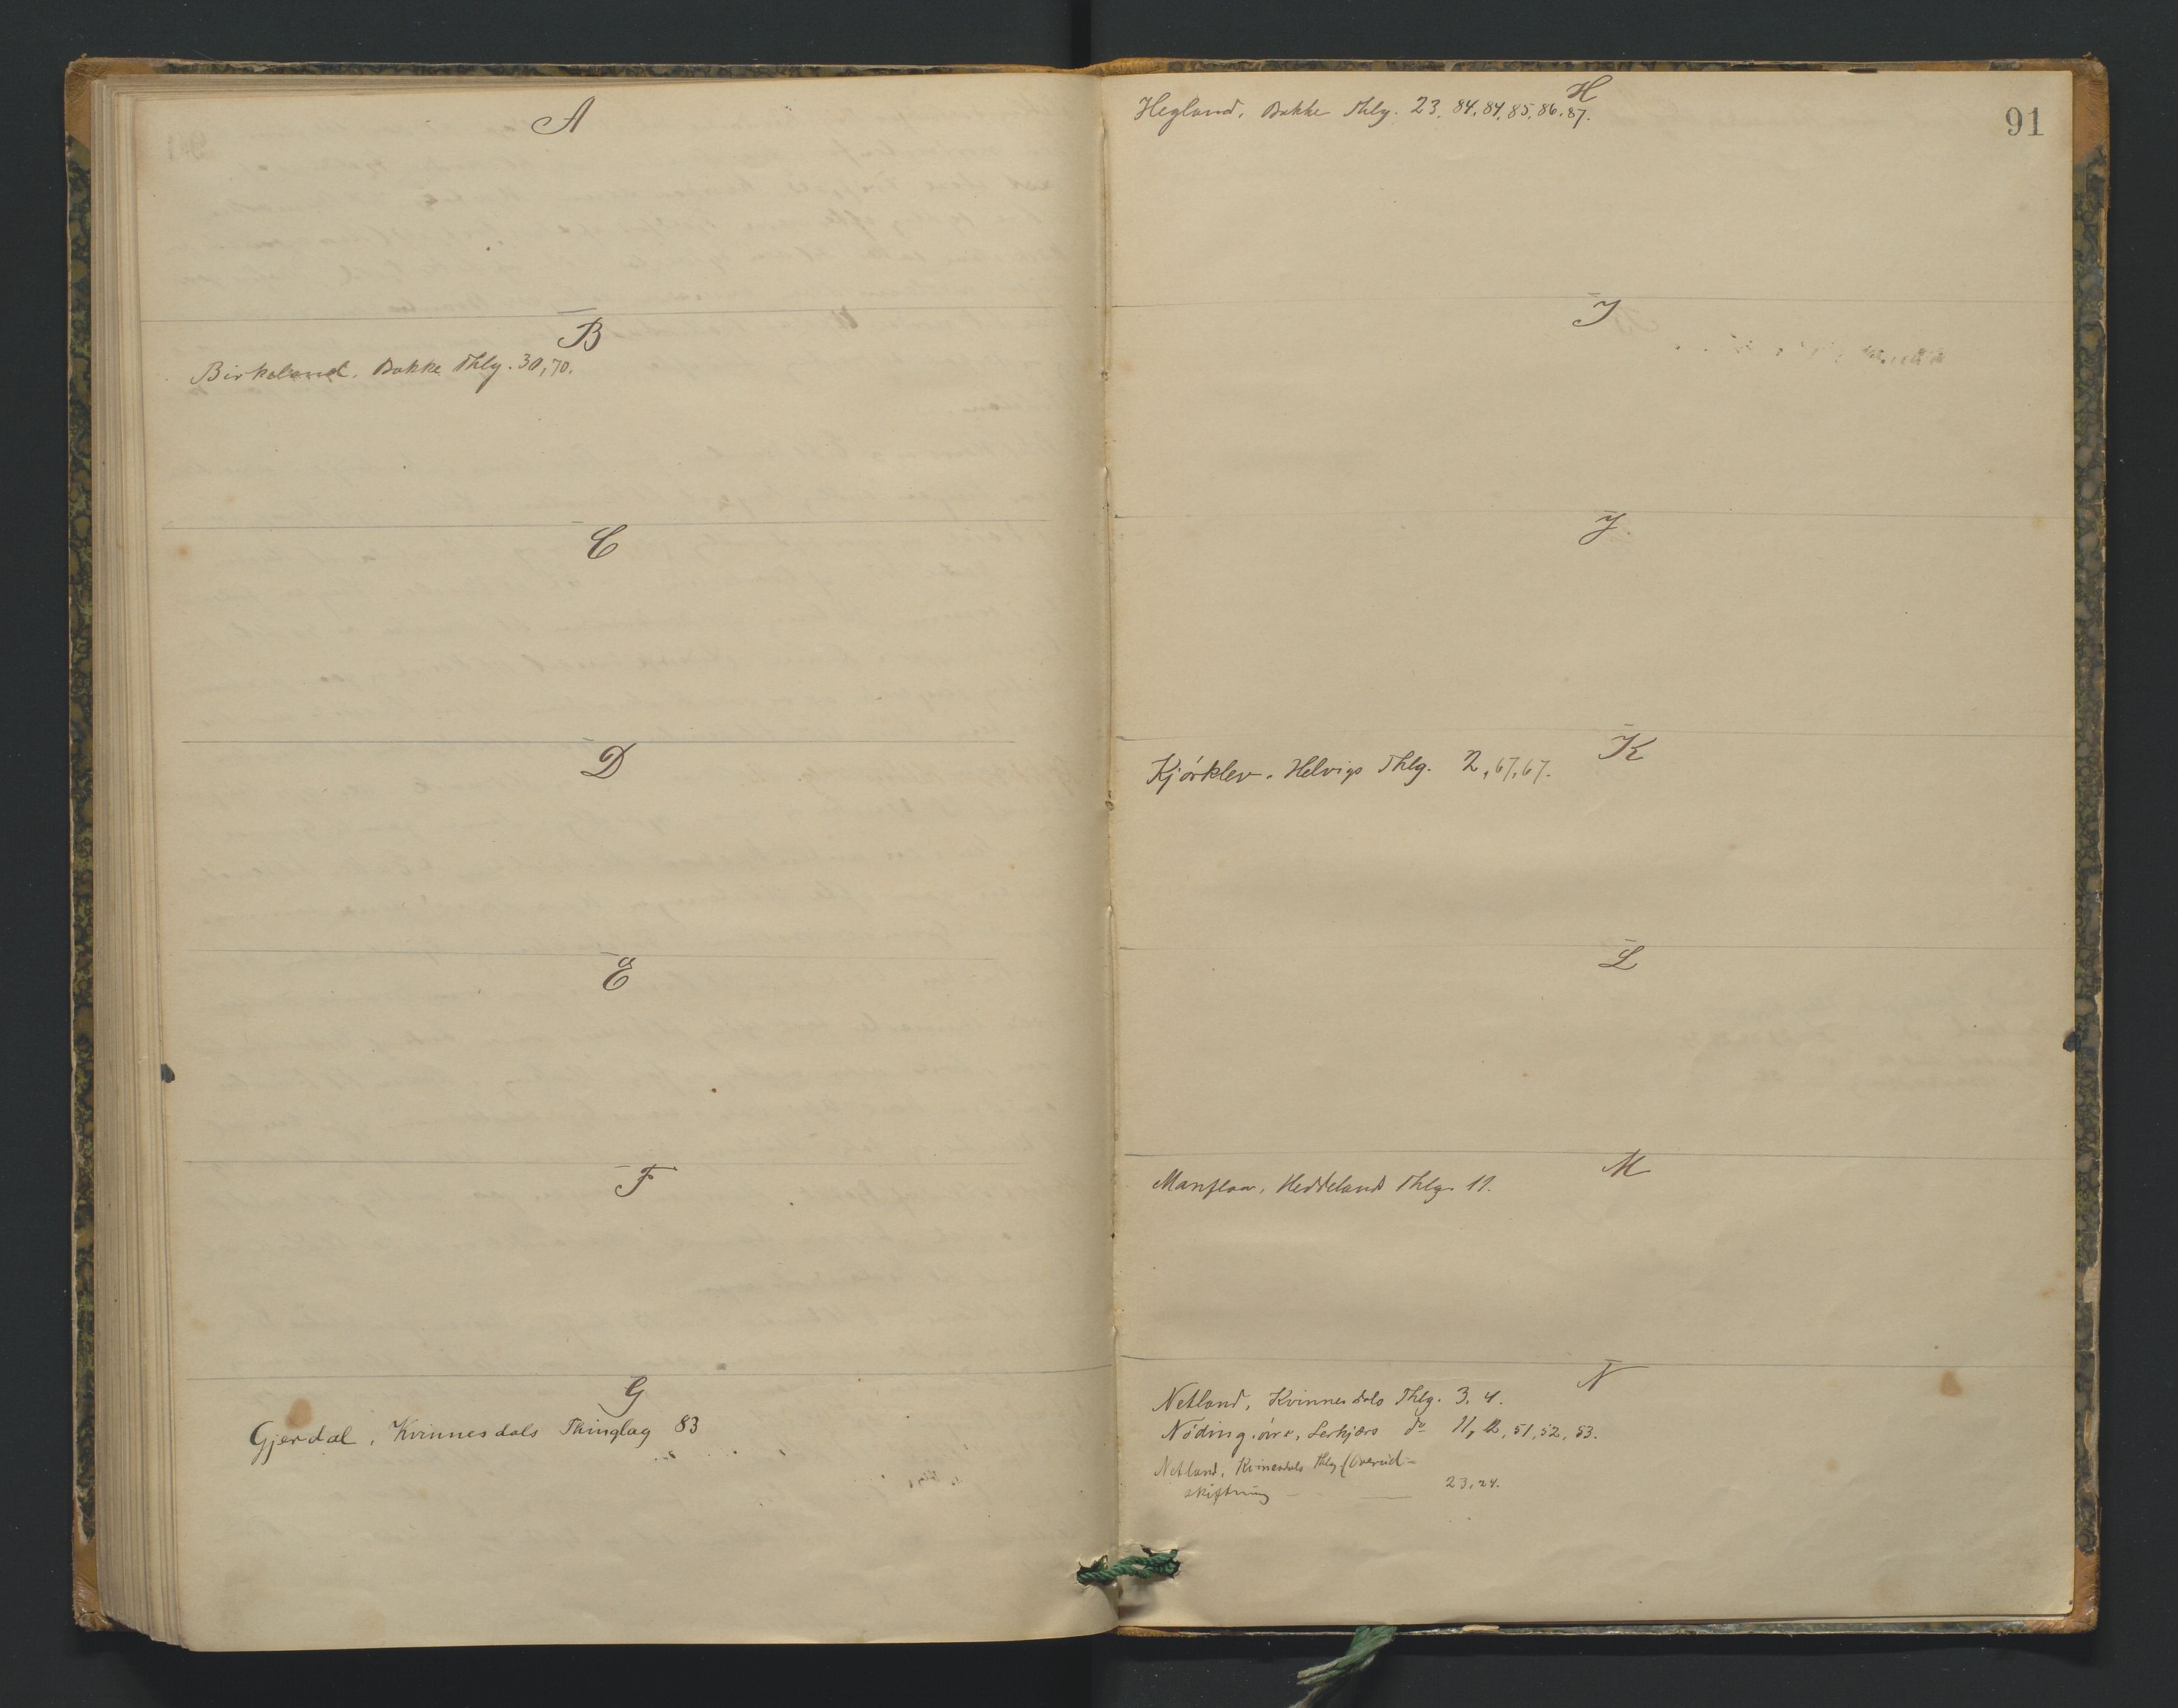 A
B
Birkeland. Bakke Thlg. 30, 70.
C
D
E
F
G
Gjerdal, Kvinnesdals Thinglag 83
91
H
Hegland, Bakke Thlg. 23, 84, 84, 85, 86, 87.
I
J.
K
Kjörklev, Helvigs Thlg. 2, 67, 67.
L
M
Manflaa, Heddelands Thlg. 11.
N
Netland, Kvinnesdals Thlg. 3, 4.
Nöding, övre, do 11, 12, 51, 52, 53.
Netland, Kvinesdals Thlg. (Overud-
skiftning — — 23, 24.